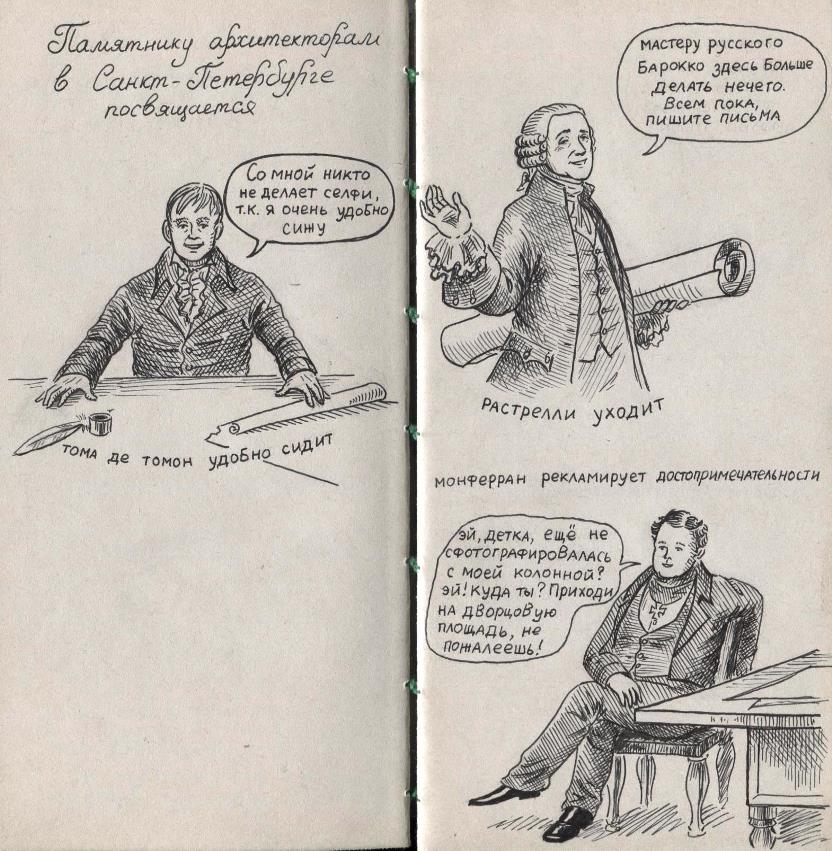 Памятнику архитекторам
в Санкт-Петербурге
посвящается
Со мной никто
не делает селфи,
т.к. я очень удобно
сижу
Тома де Томон удобно сидит
Мастеру русского
Барокко здесь больше
делать нечего.
Всем пока,
пишите письма
Растрелли уходит
Монферран рекламирует достопримечательности
Эй, детка, ещё не
сфотографировалась
с моей колонной?
Эй! Куда ты? Приходи
на Дворцовую
площадь, не
пожалеешь!